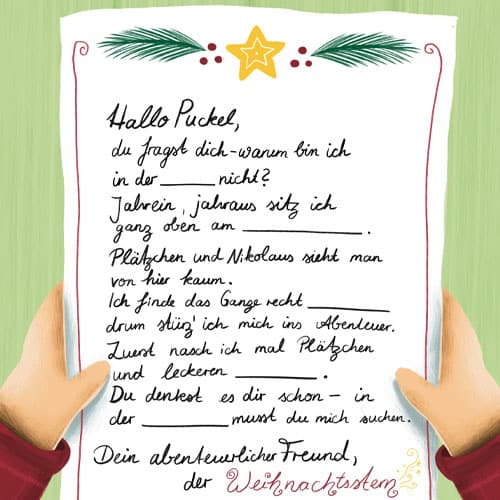 Hallo Puckel,
du fragst dich - warum bin ich
in der ______ nicht?
Jahrein, jahraus sitz ich
ganz oben am ____________.
Plätzchen und Nikolaus sieht man
von hier kaum.
Ich finde das Ganze recht ________
drum stürz' ich mich ins Abenteuer.
Zuerst nasch ich mal Plätzchen
und leckeren ________.
Du denkst es dir schon - in
der ________ musst du mich suchen.
Dein abenteuerlicher Freund,
der Weihnachtsstern